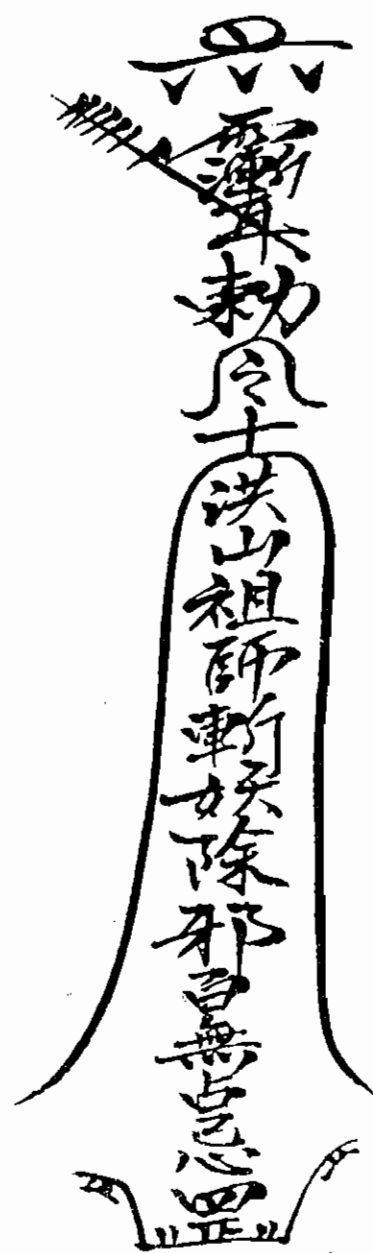 敕令
洪山祖師斬妖除邪百無忌
罡